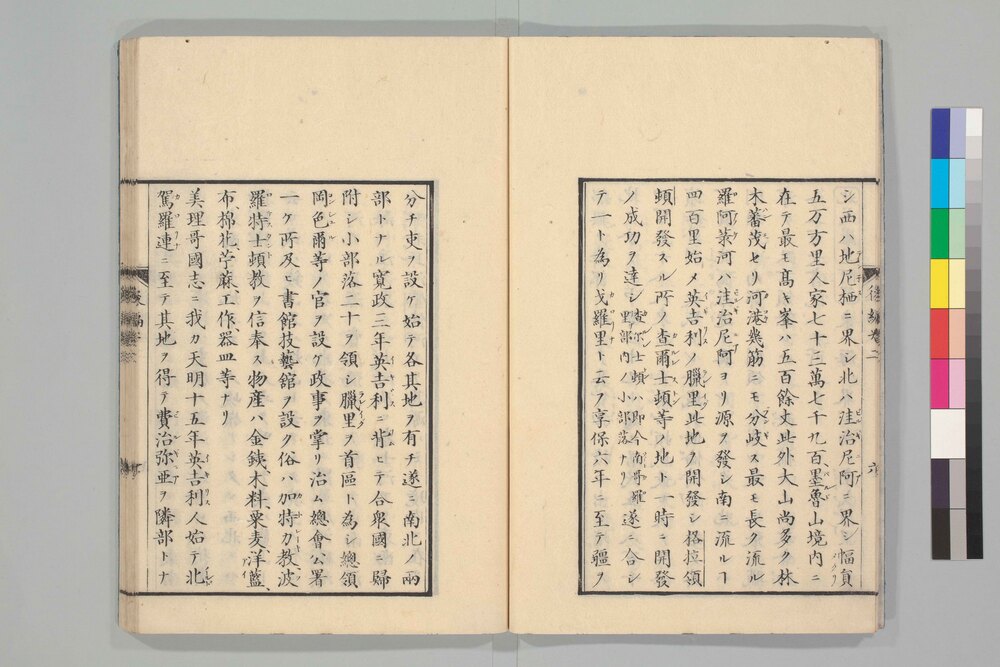 シ西ハ地尼栖ニ界シ北ハ洼治尼阿ニ界シ幅員
五万方里人家七十三萬七千九百墨魯山境内ニ
在テ最モ髙キ峯ハ五百餘丈此外大山尚多ク林
木蕃茂セリ河港幾筋ニモ分岐ス最モ長ク流ル
羅阿菉河ハ洼治尼阿ヨリ源ヲ發シ南ニ流ルヿ
四百里始メ英吉利ノ臘里此地ヲ開發シ搭拉領
頓開發スル所ノ査爾士頓等ノ地ト一時ニ開發
ノ成功ヲ達シ査尓士頓ハ即今南哥羅里部内ノ小部落ナリ遂ニ合シ
テ一ト為リ戈羅里ト云フ享保六年ニ至テ疆ヲ
分チ吏ヲ設ケ始テ各其地ヲ有チ遂ニ南北ノ兩
部トナル寛政三年英吉利ニ背ヒテ合衆國ニ歸
附シ小部落二十ヲ領シ臘里ヲ首區ト為シ總領
岡色爾等ノ官ヲ設ケ政事ヲ掌リ治ム總會公署
一ケ所及ヒ書館技藝館ヲ設ク俗ハ加特力教波
羅特士頓教ヲ信奉ス物産ハ金銕木料粟麦洋藍
布棉花苧麻工作器皿等ナリ
美理哥國志ニ我カ天明十五年英吉利人始テ北
駕羅連ニ至テ其地ヲ得テ費治弥亜ヲ隣部トナ